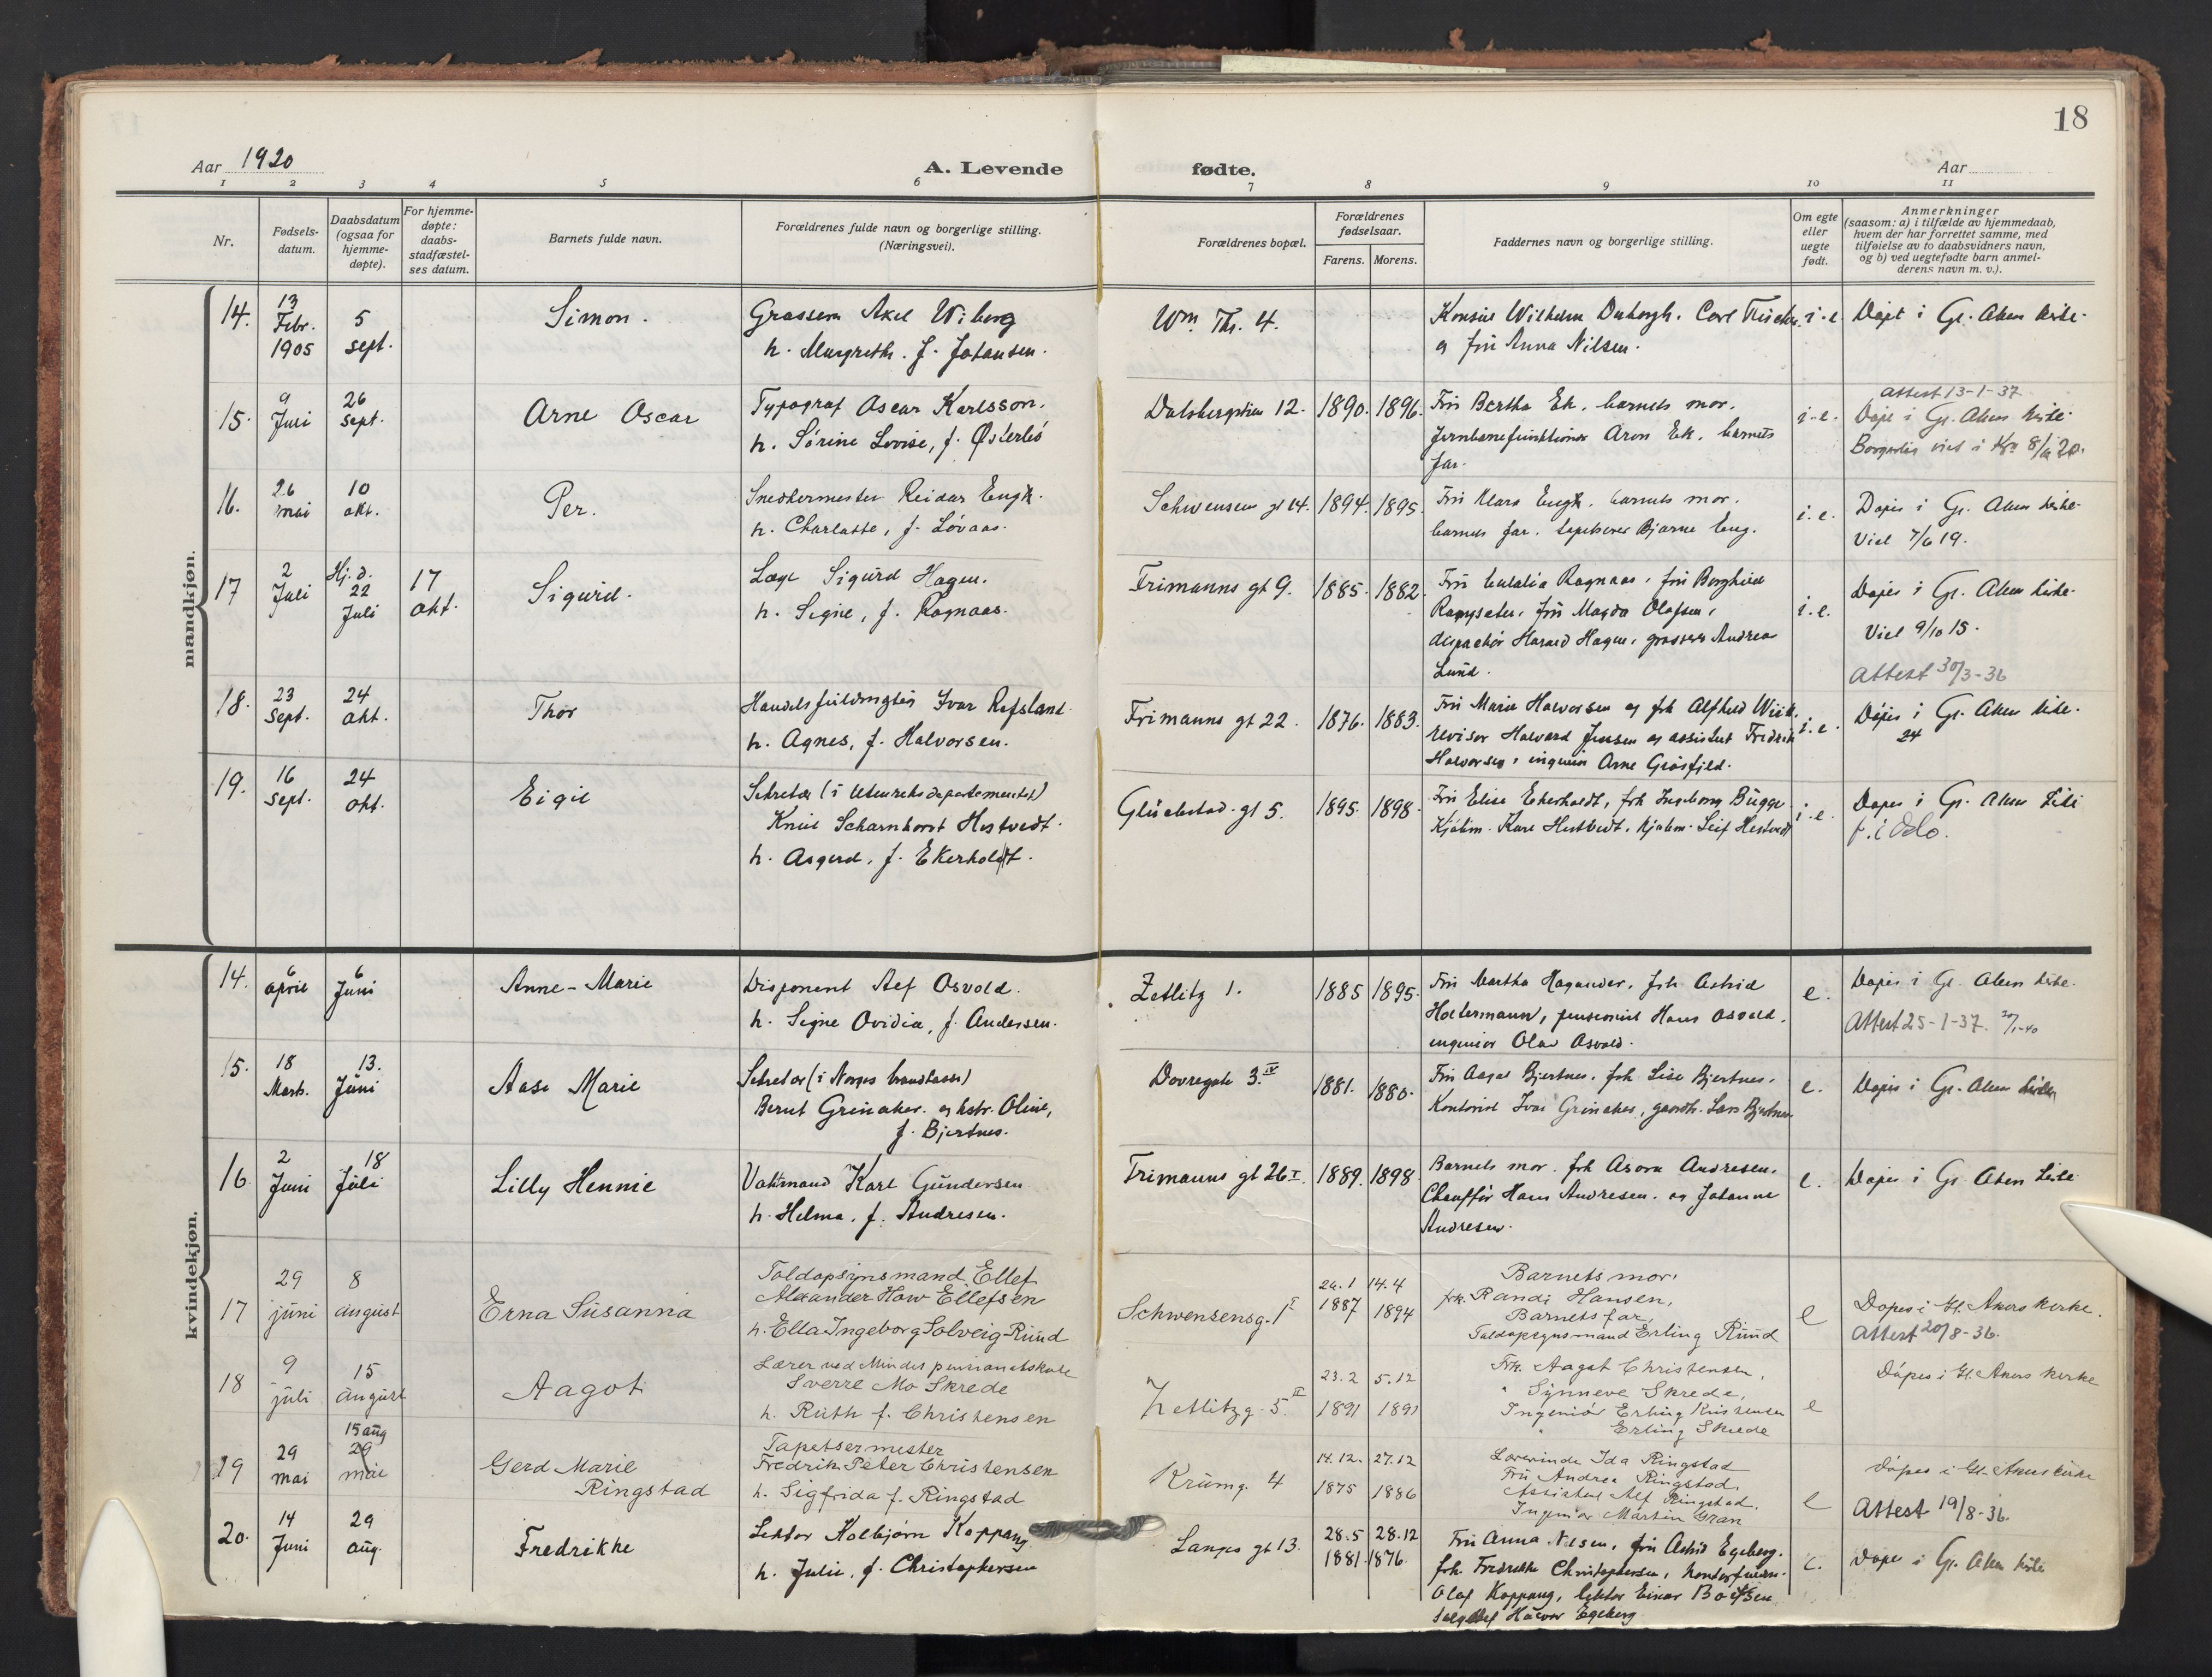 18
Aar 1920
A. Levende
fødte.
Aar
1 2 3 4 5 6 7 8 9 10 11
Nr.
Fødsels-
datum.
Daabsdatum
(ogsaa for
hjemme-
døpte).
For hjemme-
døpte:
daabs-
stadfæstel-
ses datum.
Barnets fulde navn.
Forældrenes fulde navn og borgerlige stilling.
(Næringsvei).
Forældrenes bopæl.
Forældrenes
fødselsaar.
Farens. Morens.
Faddernes navn og borgerlige stilling.
Om egte
eller
uegte
født.
Anmerkninger
(saasom: a) i tilfælde av hjemmedaab,
hvem der har forrettet samme, med
tilføielse av to daabsvidners navn,
og b) ved uegtefødte barn anmel-
derens navn m. v.).
mandkjøn.
14.
13
Febr.
1905
5
sept.
Simon.
Grosserer Axel Wiberg
h. Margreth. f. Johansen.
Wm. Th. 4.
Konsul Wilhelm
og fru Anna Nilsen.
i.e.
Døpt i Gl. Akers kirke.
15.
9
Juli
26
sept.
Arne Oscar
Typograf Oscar Karlsson.
h. Sörine Lovise, f. Østerbö
Dalsbergstien 12.
1890. 1896.
Fru Bertha Ek. barnets mor.
Jernbanefunktionær Aron Ek. barnets
far.
i.e.
Attest 13-1-37
Døpt i Gl. Akers kirke
Borgerlig viet i Kra 20.
16.
26
mai
10
okt.
Per.
Snedkermester Reidar Engh.
h. Charlotte, f. Lövaas.
Schwensens gt 14.
1894. 1895.
Fru Klara Engh. barnets mor.
barnets far. tapetserer Bjarne Eng.
i.e.
Døpt i Gl. Akers kirke.
Viet 7/6 19.
17
2
Juli
Hj.d.
22
Juli
17
okt.
Sigurd.
Læge Sigurd Hagen.
h. Signe, f. Rognaas.
Frimanns gt 9.
1885. 1882.
Fru Eulalia Rognaas, fru Borghild
fru Magda Olafsen,
dispachør Harald Hagen, grosserer Andreas
Lund.
i.e.
Døpt i Gl. Akers kirke.
Viet 9/10 15.
Attest 30/3-36
18.
23
sept.
24
okt.
Thor
Handelsfuldmægtig Ivar Refsland.
h. Agnes, f. Halvorsen.
Frimanns gt 22.
1876. 1883.
Fru Marie Halvorsen og frk Alfhild Wiik.
revisor Halvard Jensen og assistent Fredrik
Halvorsen, ingeniør Arne Grösfjeld.
i.e.
Døpt i Gl. Akers kirke.
24
19.
16
sept.
24
okt.
Eigil
Sekretær (i Utenriksdepartementet)
Knut Scharnhorst Hestvedt.
h. Asgerd, f. Ekerholdt.
Glückstad. gt 5.
1895. 1898.
Fru Elise Ekerholdt, frk Ingeborg Bugge
Kjøbm. Kare Hestvedt, kjøbm. Leif Hestvedt
i.e.
Døpt i Gl. Akers kirke
f. i Oslo.
kvindekjøn.
14.
6
April
6
Juni
Anne-Marie
Disponent Alf Osvold.
h. Signe Ovidia, f. Andersen.
Zetlitz 1.
1885 1895.
Fru Martha Hagander, frk Astrid
Holtermann, pensionist Hans Osvold,
ingeniør Olav Osvold.
e.
Døpt i Gl. Akers kirke.
Attest 25-1-37.
15.
18
Marts.
13.
Juni
Aase Marie
Sekretær (i Norges brandkasse)
Bernt Grinaker. og hstr. Oline,
f. Bjertnes.
Dovregate 3. IV
1881. 1880.
Fru Aagot Bjertnes, frk Lise Bjertnes,
Kontorist Ivar Grinaker, gaardb. Lars Bjertnes
e.
Døpt i Gl. Akers kirke
16
2
Juni
18
Juli
Lilly Hennie
Vaktmand Karl Gundersen
h. Helma, f. Andresen.
Frimanns gt 26 I.
1889. 1898
Barnets mor. frk Asora Andresen,
Chauffør Hans Andresen. og Johanne
Andresen.
e.
Døpt i Gl. Akers kirke
17
29
juni
8
august
Erna Susanna
Toldopsynsmand Ellef
Alexander How Ellefsen
h. Ella Ingeborg Solveig Ruud
Schwensensg. 1 I
1887 14.4 1894
Barnets mor,
frk. Randi Hansen,
Barnets far,
Toldopsynsmand Erling Ruud
e
Døpt i Gl. Akers kirke.
Attest 20/8-36.
18
9
juli
15
august
Aagot
Lærer ved Mindes pensionatskole
Sverre Mo Skrede
h. Ruth f. Christensen
Zetlitzg. 5 II
23.2 5.12
1891 1891
Frk. Aagot Christensen,
" Synneve Skrede,
Ingeniør Erling Kristensen
" Erling Skrede
e
Døpt i Gl. Akers kirke
19
29
mai
15 aug
29
mai
Gerd Marie
Ringstad
Tapetsermester
Fredrik Peter Christensen
h. Sigfrida f. Ringstad
Krumg. 4
14.12. 27.12
1875 1886
Lærerinde Ida Ringstad
Fru Andrea Ringstad,
Assistent Alf Ringstad,
Ingeniør Martin Gran
e
Døpt i Gl. Akers kirke
Attest 19/8-36.
20.
14
Juni
29
aug.
Fredrikke
Lektor Kolbjørn Koppang
h. Julie, f. Christophersen
Langes gt 13.
28.5 28.12
1881. 1876.
Fru Anna Nilsen, fru Astrid Egeberg.
frk. Fredrikke Christophersen,
Olaf Koppang, lektor Einar Boitsen
Halvor Egeberg
e.
Døpt i Gl. Akers kirke